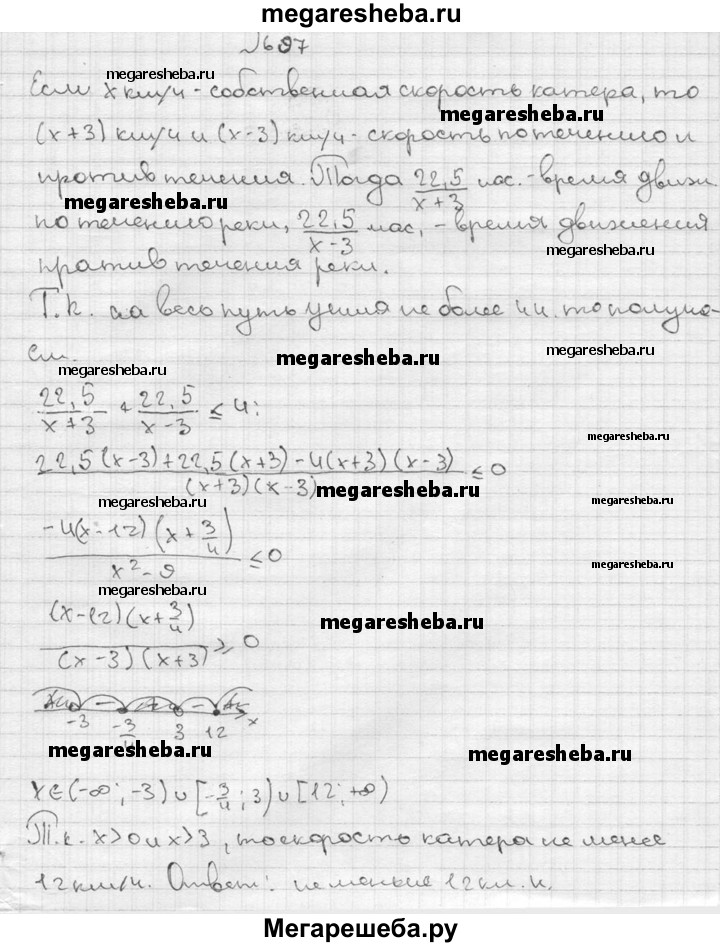 megaresheba.ru
№697
megaresheba.ru
Если x км/ч - собственная скорость катера, то
megaresheba.ru
(x+3) км/ч и (x-3) км/ч - скорость по течению и
против течения. Тогда 22,5/(x+3) час. - время движ.
megaresheba.ru
по течению реки, 22,5/(x-3) час, - время движения
megaresheba.ru
против течения реки.
Т.к. на весь путь ушла не более 4ч. то получа-
ем.
megaresheba.ru
megaresheba.ru
megaresheba.ru
22,5/(x+3) + 22,5/(x-3) ≤ 4:
megaresheba.ru
(22,5(x-3)+22,5(x+3)-4(x+3)(x-3))/((x+3)(x-3)) ≤ 0
megaresheba.ru
megaresheba.ru
megaresheba.ru
(-4(x-12)(x+3/4))/(x²-9) ≤ 0
megaresheba.ru
megaresheba.ru
((x-12)(x+3/4))/((x-3)(x+3)) ≥ 0
megaresheba.ru
- -
-3 -3/4 3 12 x
megaresheba.ru
megaresheba.ru
x∈(-∞;-3)∪[-3/4;3)∪[12;+∞)
Т.к. x>0 и x>3, то скорость катера не менее
12км/ч. Ответ: не меньше 12км.ч.
Мегарешеба.ру